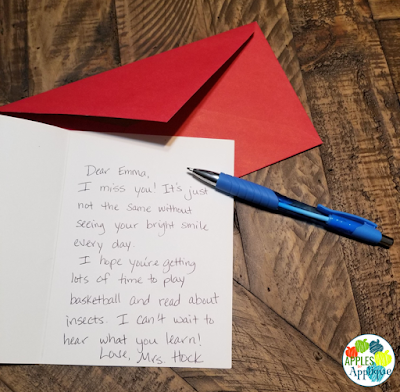 Dear Emma,
I miss you! It's just
not the same without
seeing your bright smile
every day.
I hope you're getting
lots of time to play
basketball and read about
insects. I can't wait to
hear what you learn!
Love, Mrs. Hock
APPLES
to
Applique